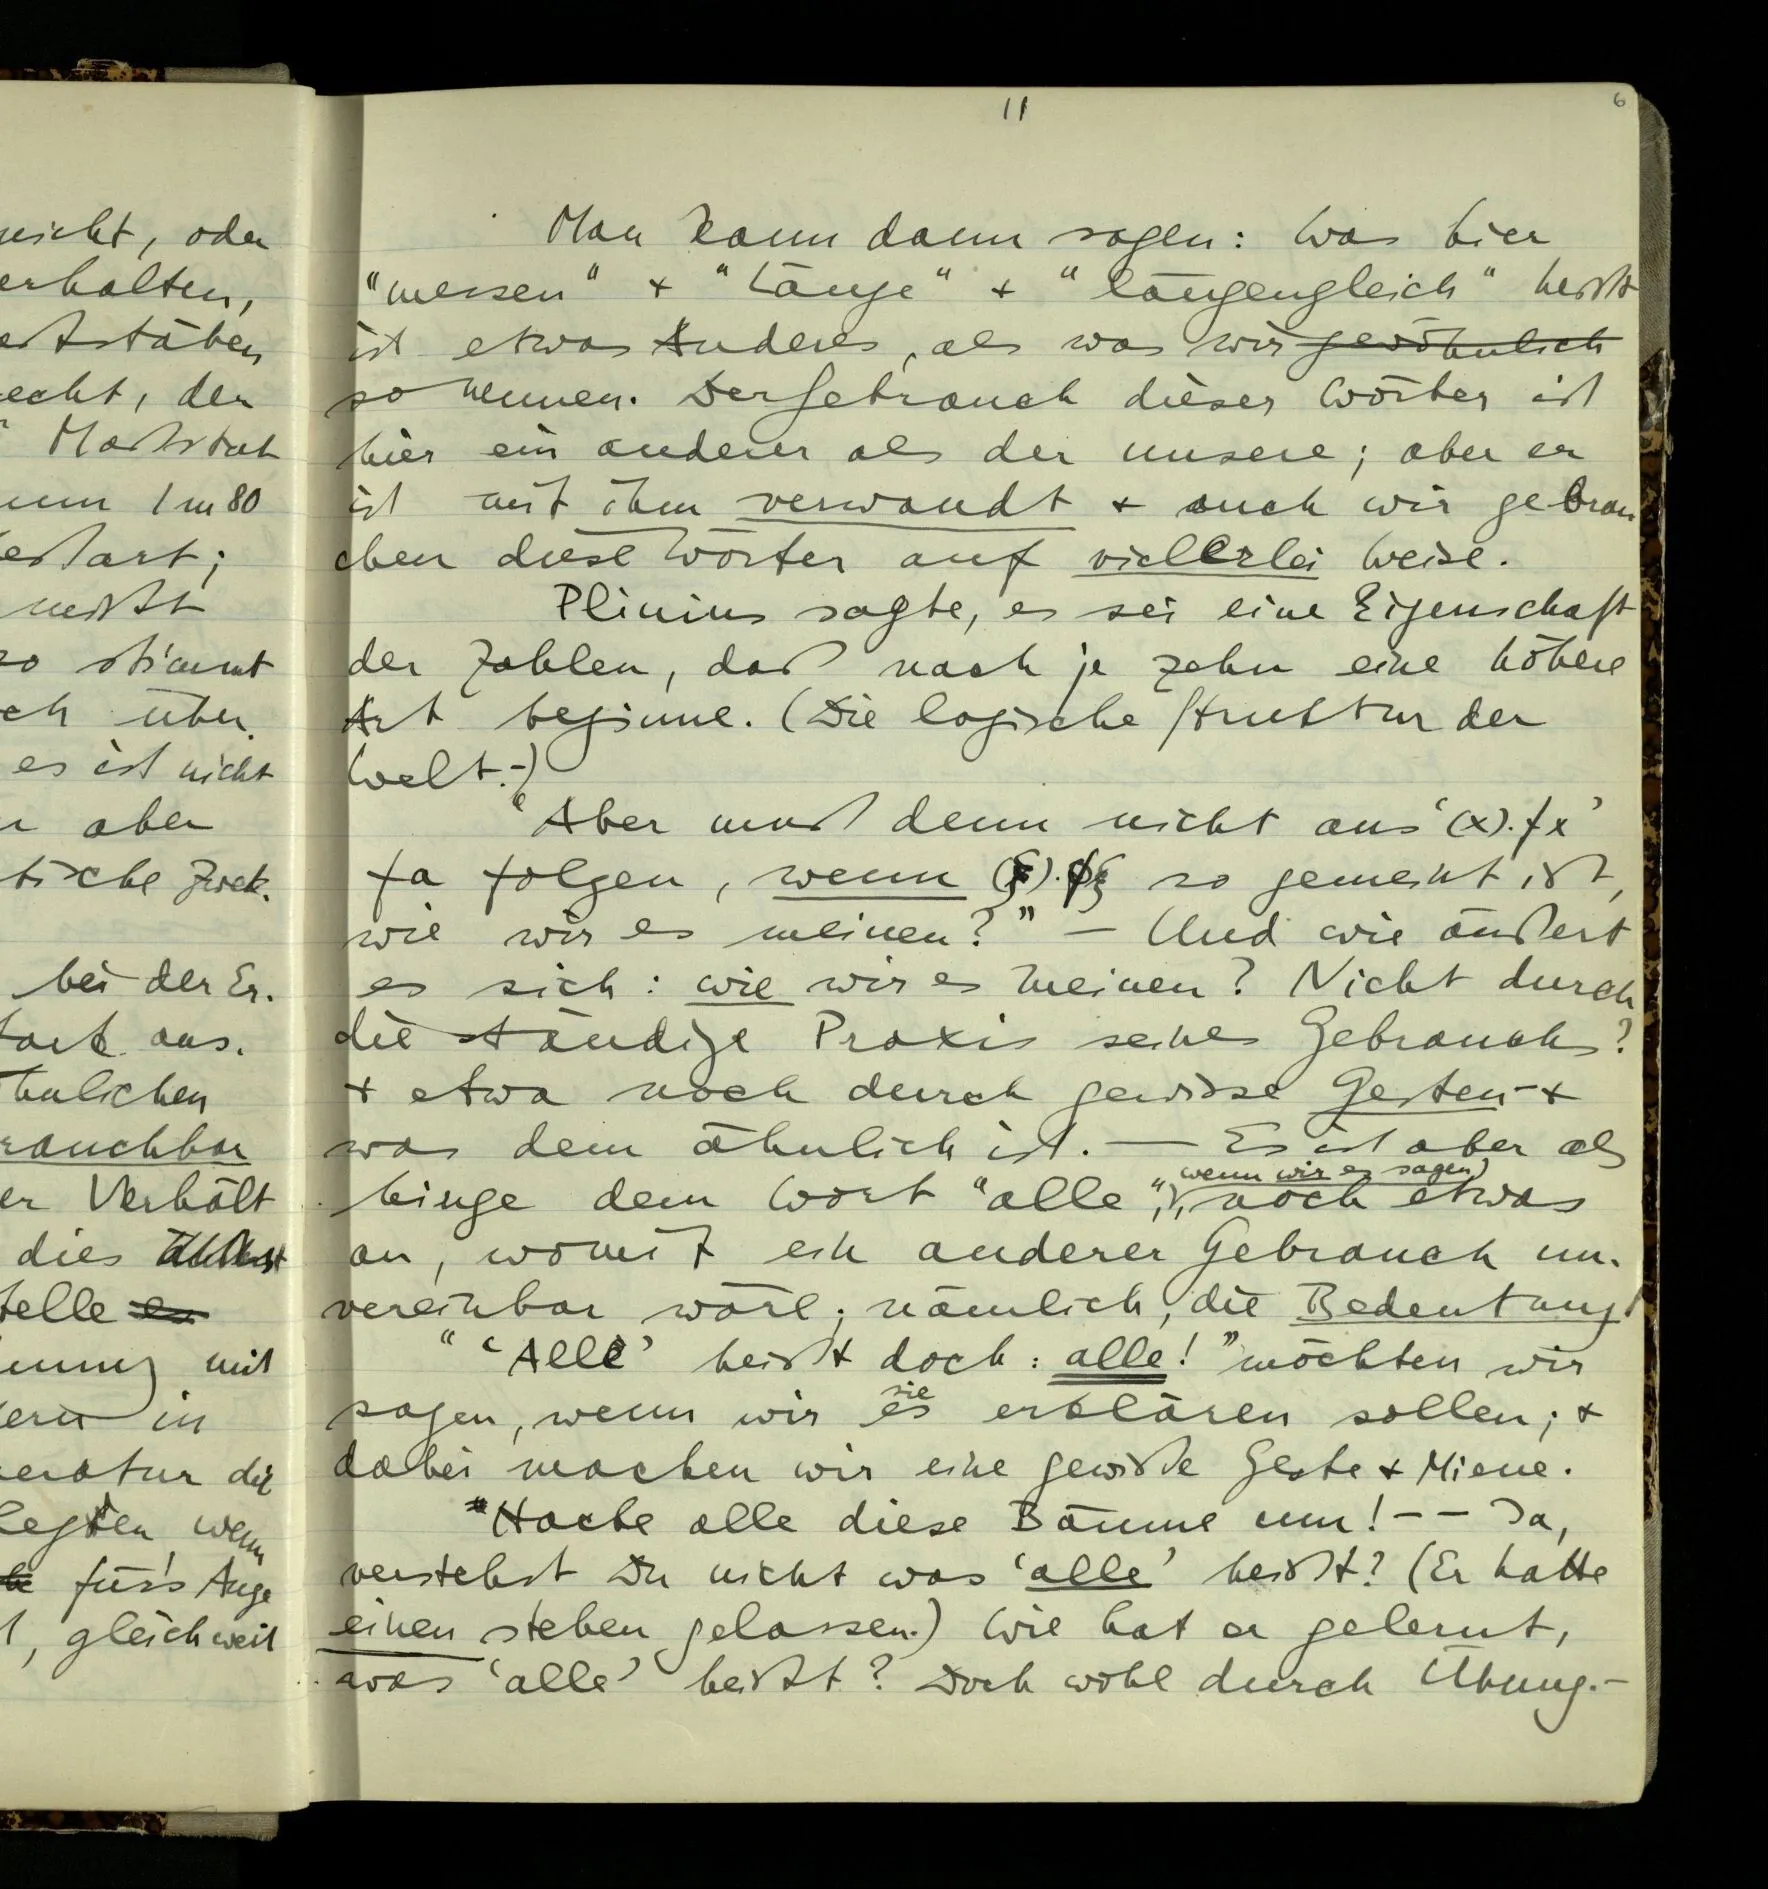 nicht, oder
erhalten,
aßstäben
echt, der
" Maßstab
1 m 80
ßart;
mißt
so stimmt
ch über.
es ist nicht
aber
tische Zwek.
bei der Er.
aus.
hnlichen
rauchbar
er Verhält
dies
telle en
mung mit
ern in
eratur die
legten, wenn
für's Auge
, gleichweit
11
6
Man kann dann sagen: Was hier
"messen" + "Länge" + "längengleich" heißt
ist etwas Anderes, als was wir gewöhnlich
so nennen. Der Gebrauch dieser Wörter ist
hier ein anderer als der unsere; aber er
ist mit ihm verwandt + auch wir gebrau
chen diese Wörter auf vielerlei Weise.
Plinius sagte, es sei eine Eigenschaft
der Zahlen, daß nach je zehn eine höhere
Art beginne. (Die logische Struktur der
Welt.-)
"Aber muß denn nicht aus '(x).fx'
fa folgen, wenn (ξ).ϕξ so gemeint ist,
wie wir es meinen?" – Und wie äußert
es sich: wie wir es meinen? Nicht durch
die ständige Praxis seines Gebrauchs?
+ etwa noch durch gewisse Gesten – +
was dem ähnlich ist. — Es ist aber als
wenn wir es sagen,
hinge dem Wort "alle", noch etwas
an, womit ein anderer Gebrauch un.
vereinbar wäre; nämlich, die Bedeutung!
" 'Alle' heißt doch: alle!" möchten wir
sie
sagen, wenn wir es erklären sollen; +
dabei machen wir eine gewiße Geste + Miene.
"Hacke alle diese Bäume um! – – Ja,
verstehst Du nicht was 'alle' heißt? (Er hatte
einen stehen gelassen.) Wie hat er gelernt,
was 'alle' heißt? Doch wohl durch Übung. –